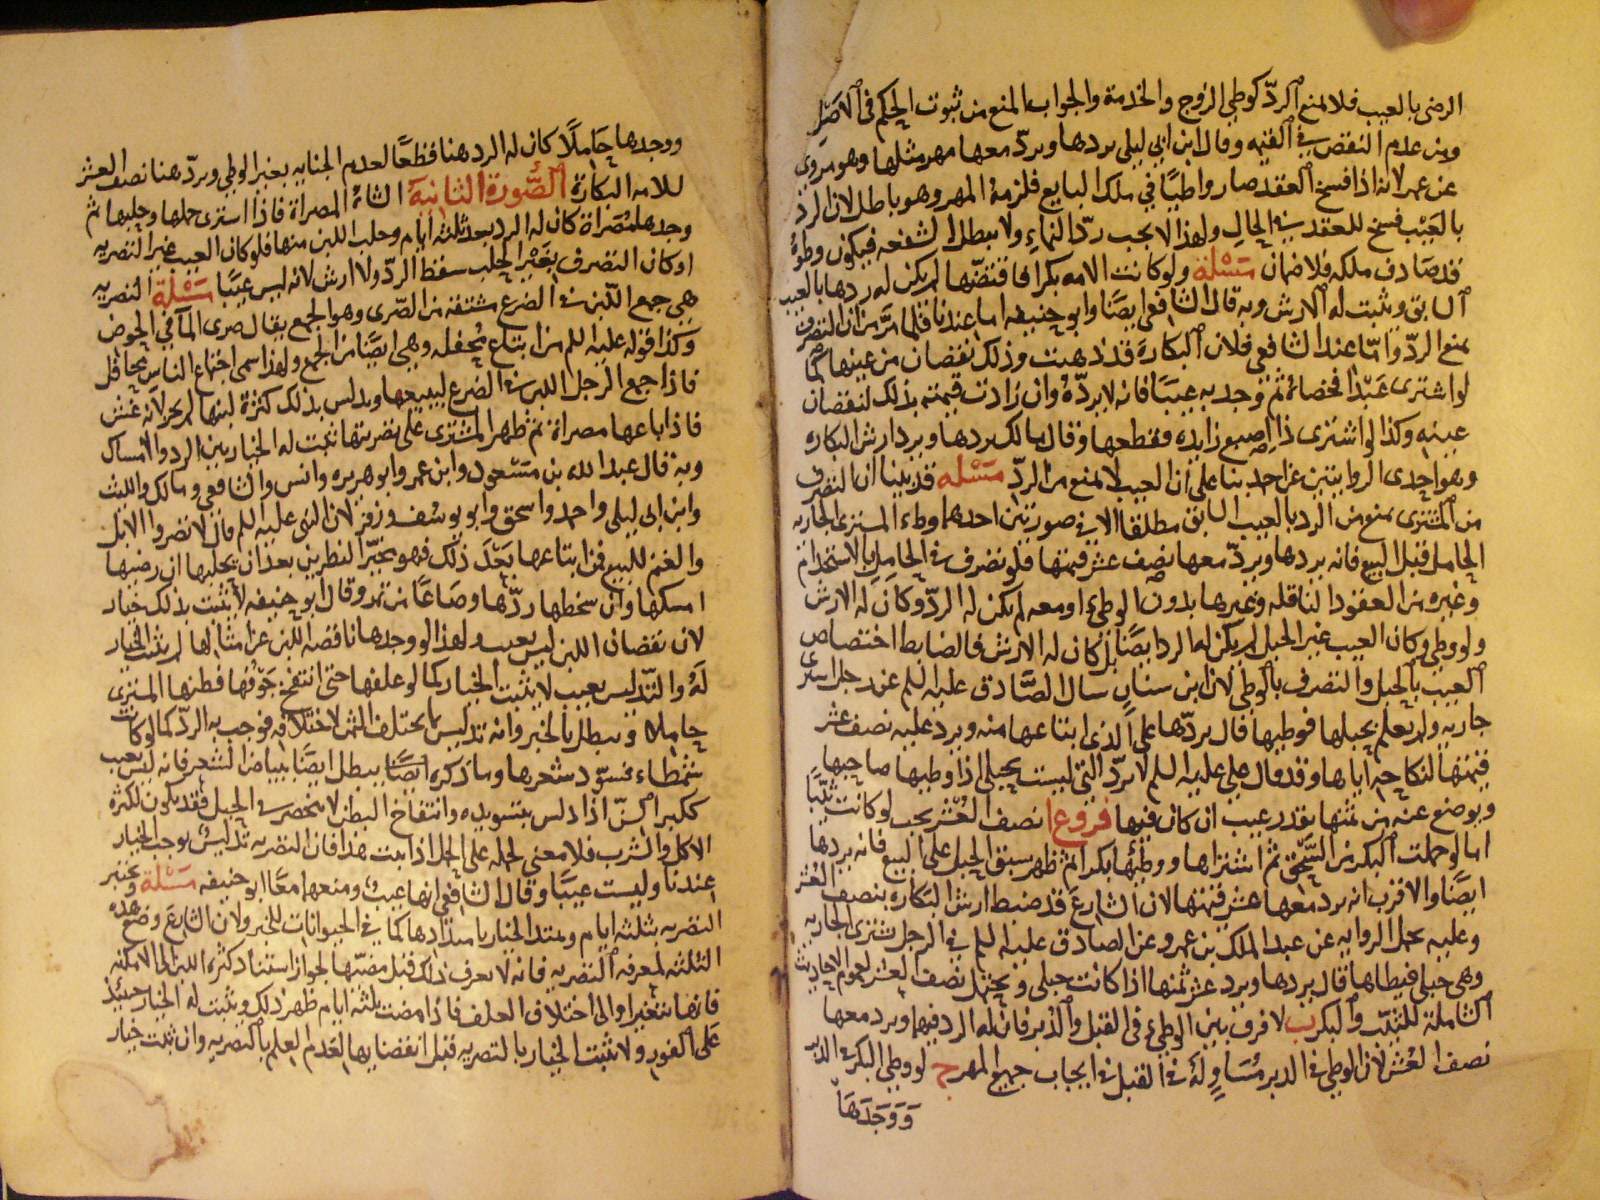 الرضى بالعيب فلا منع الرد كوطي الزوج والخدمة والجواب المنع من ثبوت الحكم في الاصل
ومن عدم النقص في القنيه وقال ابن ابي ليلى يردها ويرد معها مهر مثلها وهو مروي
عن عمر لانه اذا فسخ العقد صار واطيا في ملك البايع فلزمه المهر وهو باطل لان الرد
بالعيب فسخ للعقد في الحال ولهذا لا يجب رد النماء ولا يبطل الشفعه فيكون وطوه
قد صادف ملكه فلا ضمان مسئلة ولو كانت الامه بكرا فافتضها لم يكن له ردها بالعيب
السابق ويثبت له الارش وبه قال الشافعي ايضا وابو حنيفه اما عندنا فلما مر من ان التصرف
يمنع الرد واما عند الشافعي فلان البكاره قد ذهبت وذلك نقصان من عينها كما
لو اشترى عبدا فخصاه ثم وجد به عيبا فانه لا يرده وان زادت قيمته بذلك لنقصان
عينه وكذا لو اشترى ذا اصبع زايده فقطعها وقال مالك يردها ويرد ارش البكاره
وهو احدى الروايتين عن احمد بنا على ان العيب لا يمنع من الرد مسئله قد بينا ان التصرف
من المشتري يمنع من الرد بالعيب السابق مطلقا الا في صورتين احدهما وطء المشتري الجاريه
الحامل قبل البيع فانه يردها ويرد معها نصف عشر قيمتها فلو تصرف في الحامل بالاستخدام
وغيره من العقود الناقله وغيرها بدون الوطء او معه لم يكن له الرد وكان له الارش
ولو وطي وكان العيب غير الحبل لم يكن له الرد ايضا بل كان له الارش فالضابط اختصاص
العيب بالحبل والتصرف بالوطي لان ابن سنان سال الصادق عليه السلم عن رجل اشترى
جاريه ولم يعلم بحبلها فوطيها قال يردها على الذي ابتاعها منه ويرد عليه نصف عشر
قيمتها لنكاحه اياها وقد قال علي عليه السلم لا يرد التي ليست بحبلى اذا وطيها صاحبها
ويوضع عنه من ثمنها بقدر عيب ان كان فيها فروع ا نصف العشر يجب لو كانت ثيبا
اما لو حملت البكر من السحق ثم اشتراها ووطئها بكرا ثم ظهر سبق الحبل على البيع فانه يردها
ايضا والاقرب انه يرد معها عشر قيمتها لان الشارع قد ضبط ارش البكاره بنصف العشر
وعليه يحمل الروايه عن عبد الملك بن عمرو عن الصادق عليه السلم في الرجل يشتري الجاريه
وهي حبلى فيطاها قال يردها ويرد عشر ثمنها اذا كانت حبلى ويحتمل نصف العشر لعموم الاحاديث
الشاملة للثيب والبكر ب لا فرق بين الوطي في القبل والدبر فان له الرد فيهما ويرد معها
نصف العشر لان الوطي في الدبر مساو له في القبل في ايجاب جميع المهر ج لو وطي البكر في الدبر
ووجدها
ووجدها حاملا كان له الرد هنا قطعا لعدم الجنايه بغير الوطي ويرد هنا نصف العشر
لسلامه البكارة الصورة الثانية الشاة المصراة فاذا اشترى حملها وحلبها ثم
وجدها مصراة كان له الرد بعد ثلثه ايام وحلب اللبن منها فلو كان العيب غير التصريه
او كان التصرف بغير الحلب سقط الرد ولا ارش لانه ليس عيبا مسئلة التصريه
هي جمع اللبن في الضرع مشتقه من الصرى وهو الجمع يقال صرى الما في الحوض
وكذا قوله عليه السلم من ابتاع محفله وهي ايضا من الجمع ولهذا سمى اجتماع الناس محافل
فاذا جمع الرجل اللبن في الضرع ليبيعها ويدلس بذلك كثرة لبنها لم يجز لانه غش
فاذا باعها مصراة ثم ظهر المشتري على تصريتها ثبت له الخيار بين الرد والامساك
وبه قال عبد الله بن مسعود وابن عمر وابو هريره وانس والشافعي ومالك والليث
وابن ابي ليلى واحمد واسحق وابو يوسف وزفر لان النبي عليه السلم قال لا تصروا الابل
والغنم للبيع فمن ابتاعها بعد ذلك فهو بخير النظرين بعد ان يحلبها ان رضيها
امسكها وان سخطها ردها وصاعا من تمر وقال ابو حنيفه لا يثبت بذلك خيار
لان نقصان اللبن ليس بعيب ولهذا لو وجدها ناقصه اللبن عن امثالها لم يثبت الخيار
له والتدليس بعيب لا يثبت الخيار كما لو علفها حتى انتفخ جوفها فظنها المشتري
حاملا ويبطل بالخبر وانه تدليس بما يختلف الثمن لاختلافه فوجب به الرد كما لو كانت
شمطاء فسود شعرها وما ذكره ايضا يبطل ايضا ببياض الشعر فانه ليس بعيب
ككبير السن اذا دلس بتسويده وانتفاخ البطن لا ينحصر في الحبل فقد يكون لكثرة
الاكل والشرب فلا معنى لحمله على الحمل اذا ثبت هذا فان التصريه تدليس يوجب الخيار
عندنا وليست عيبا وقال الشافعي انها عيب ومنعهما معا ابو حنيفه مسئلة ويختبر
التصريه بثلثه ايام ويمتد الخيار بامتدادها كما في الحيوانات للخبر ولان الشارع وضع هذه
الثلثه لمعرفه التصريه فانه لا يعرف ذلك قبل مضيها لجواز استناد كثره اللبن الى الامكنه
فانها تتغير او الى اختلاف العلف فاذا مضت ثلثه ايام ظهر ذلك ويثبت له الخيار حينئذ
على الفور ولا يثبت الخيار بالتصريه قبل انقضايها لعدم العلم بالتصريه وان ثبت خيار